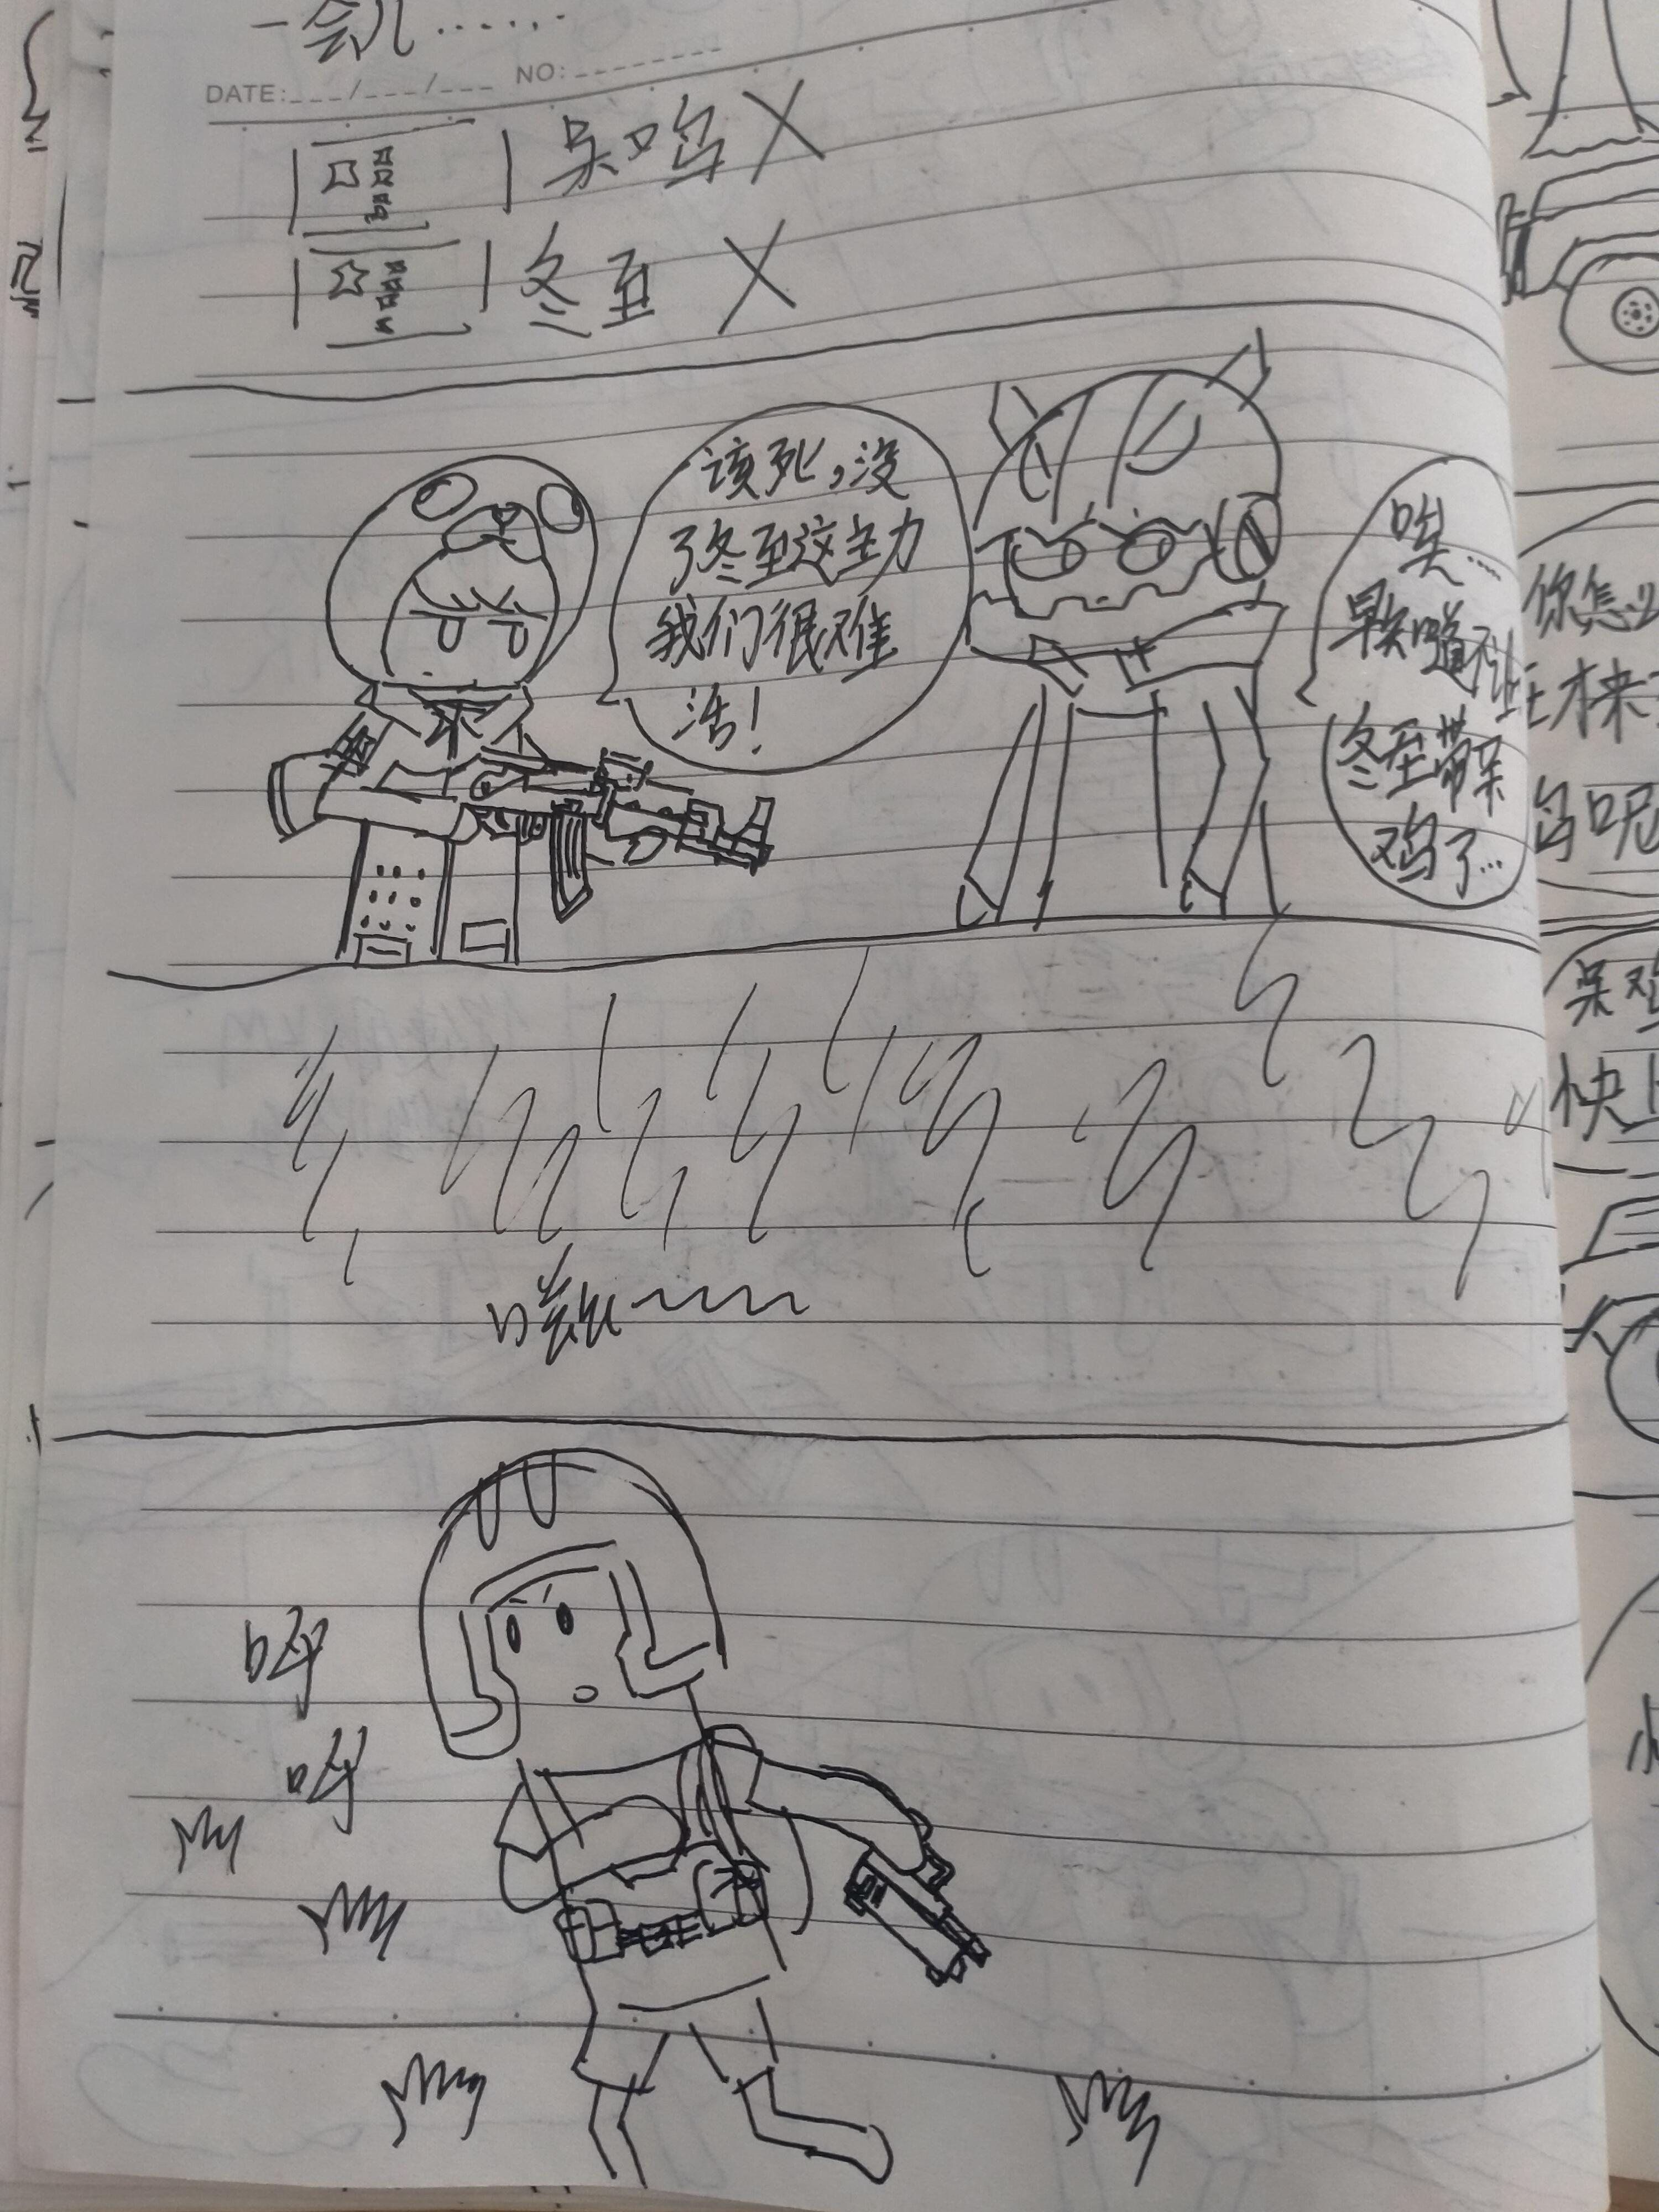 一会儿……
DATE:___/___/___ NO:_______
呆鸣 X
冬至 X
该死,没
了冬至这主力
我们很难
活!
唉……
早知道不让
冬至带呆
鸡了…
你怎么
才来
鸟呢
呆鸡
快上
呼
呼